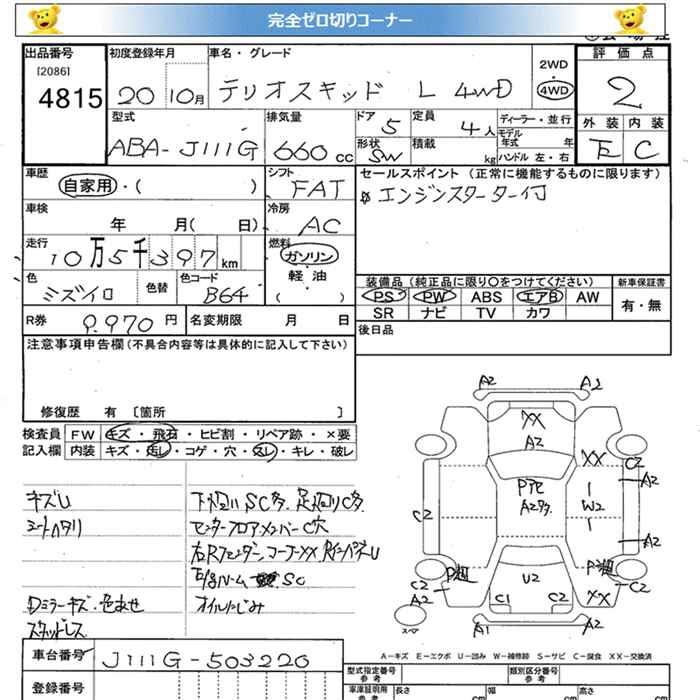 完全ゼロ切りコーナー
出品番号
[2086]
4815
初度登録年月
20 10月
車名・グレード
テリオスキッド L 4WD
2WD
4WD
評価点
2
型式
ABA-J111G
排気量
660 cc
ドア 5
形状 SW
定員 4人
積載 kg
ディーラー・並行
モデル年式 年
ハンドル 左・右
外装 内装
E C
車歴
自家用・( )
シフト
FAT
セールスポイント (正常に機能するものに限ります)
エンジンスターター付
車検
年 月( 日)
冷房
AC
走行
10万5千397km
燃料
ガソリン
軽油
( )
色
ミズイロ
色替
色コード
B64
装備品 (純正品に限り〇をつけてください)
新車保証書
PS PW ABS エアB AW
SR ナビ TV カワ
有・無
R券 9.970 円
名変期限 月 日
後日品
注意事項申告欄 (不具合内容等は具体的に記入して下さい)
修復歴 有 〔箇所 〕
検査員記入欄
FW キズ・飛石・ヒビ割・リペア跡・×要
内装 キズ・汚レ・コゲ・穴・スレ・キレ・破レ
キズU
シートヘタリ
下廻りSC多 足廻りC多
センターフロアメンバーC穴
右Rフェンダー、コーナーXX
SC
オイルにじみ
ミラーキズ・色あせ
スタッドレス
A2 A2
XX
A2
XX
C2
A2
C2
A2
W2
A2
P
C2
A2
U2
P
C2
C1 C2
XX
スペア
A1 A2
A-キズ E-エクボ U-凹み W-補修跡 S-サビ C-腐食 XX-交換済
車台番号 J111G-503220
登録番号
型式指定番号
参考
類別区分番号
参考
車庫証明用
参考
長さ cm
幅 cm
高さ cm